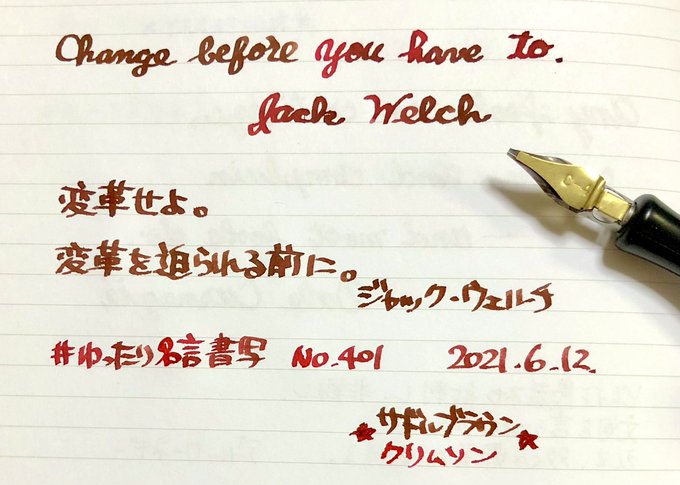 Change before you have to.
Jack Welch
変革せよ。
変革を迫られる前に。
ジャック・ウェルチ
#ゆったり名言書写 No.401 2021.6.12.
★サドルブラウン★
クリムソン